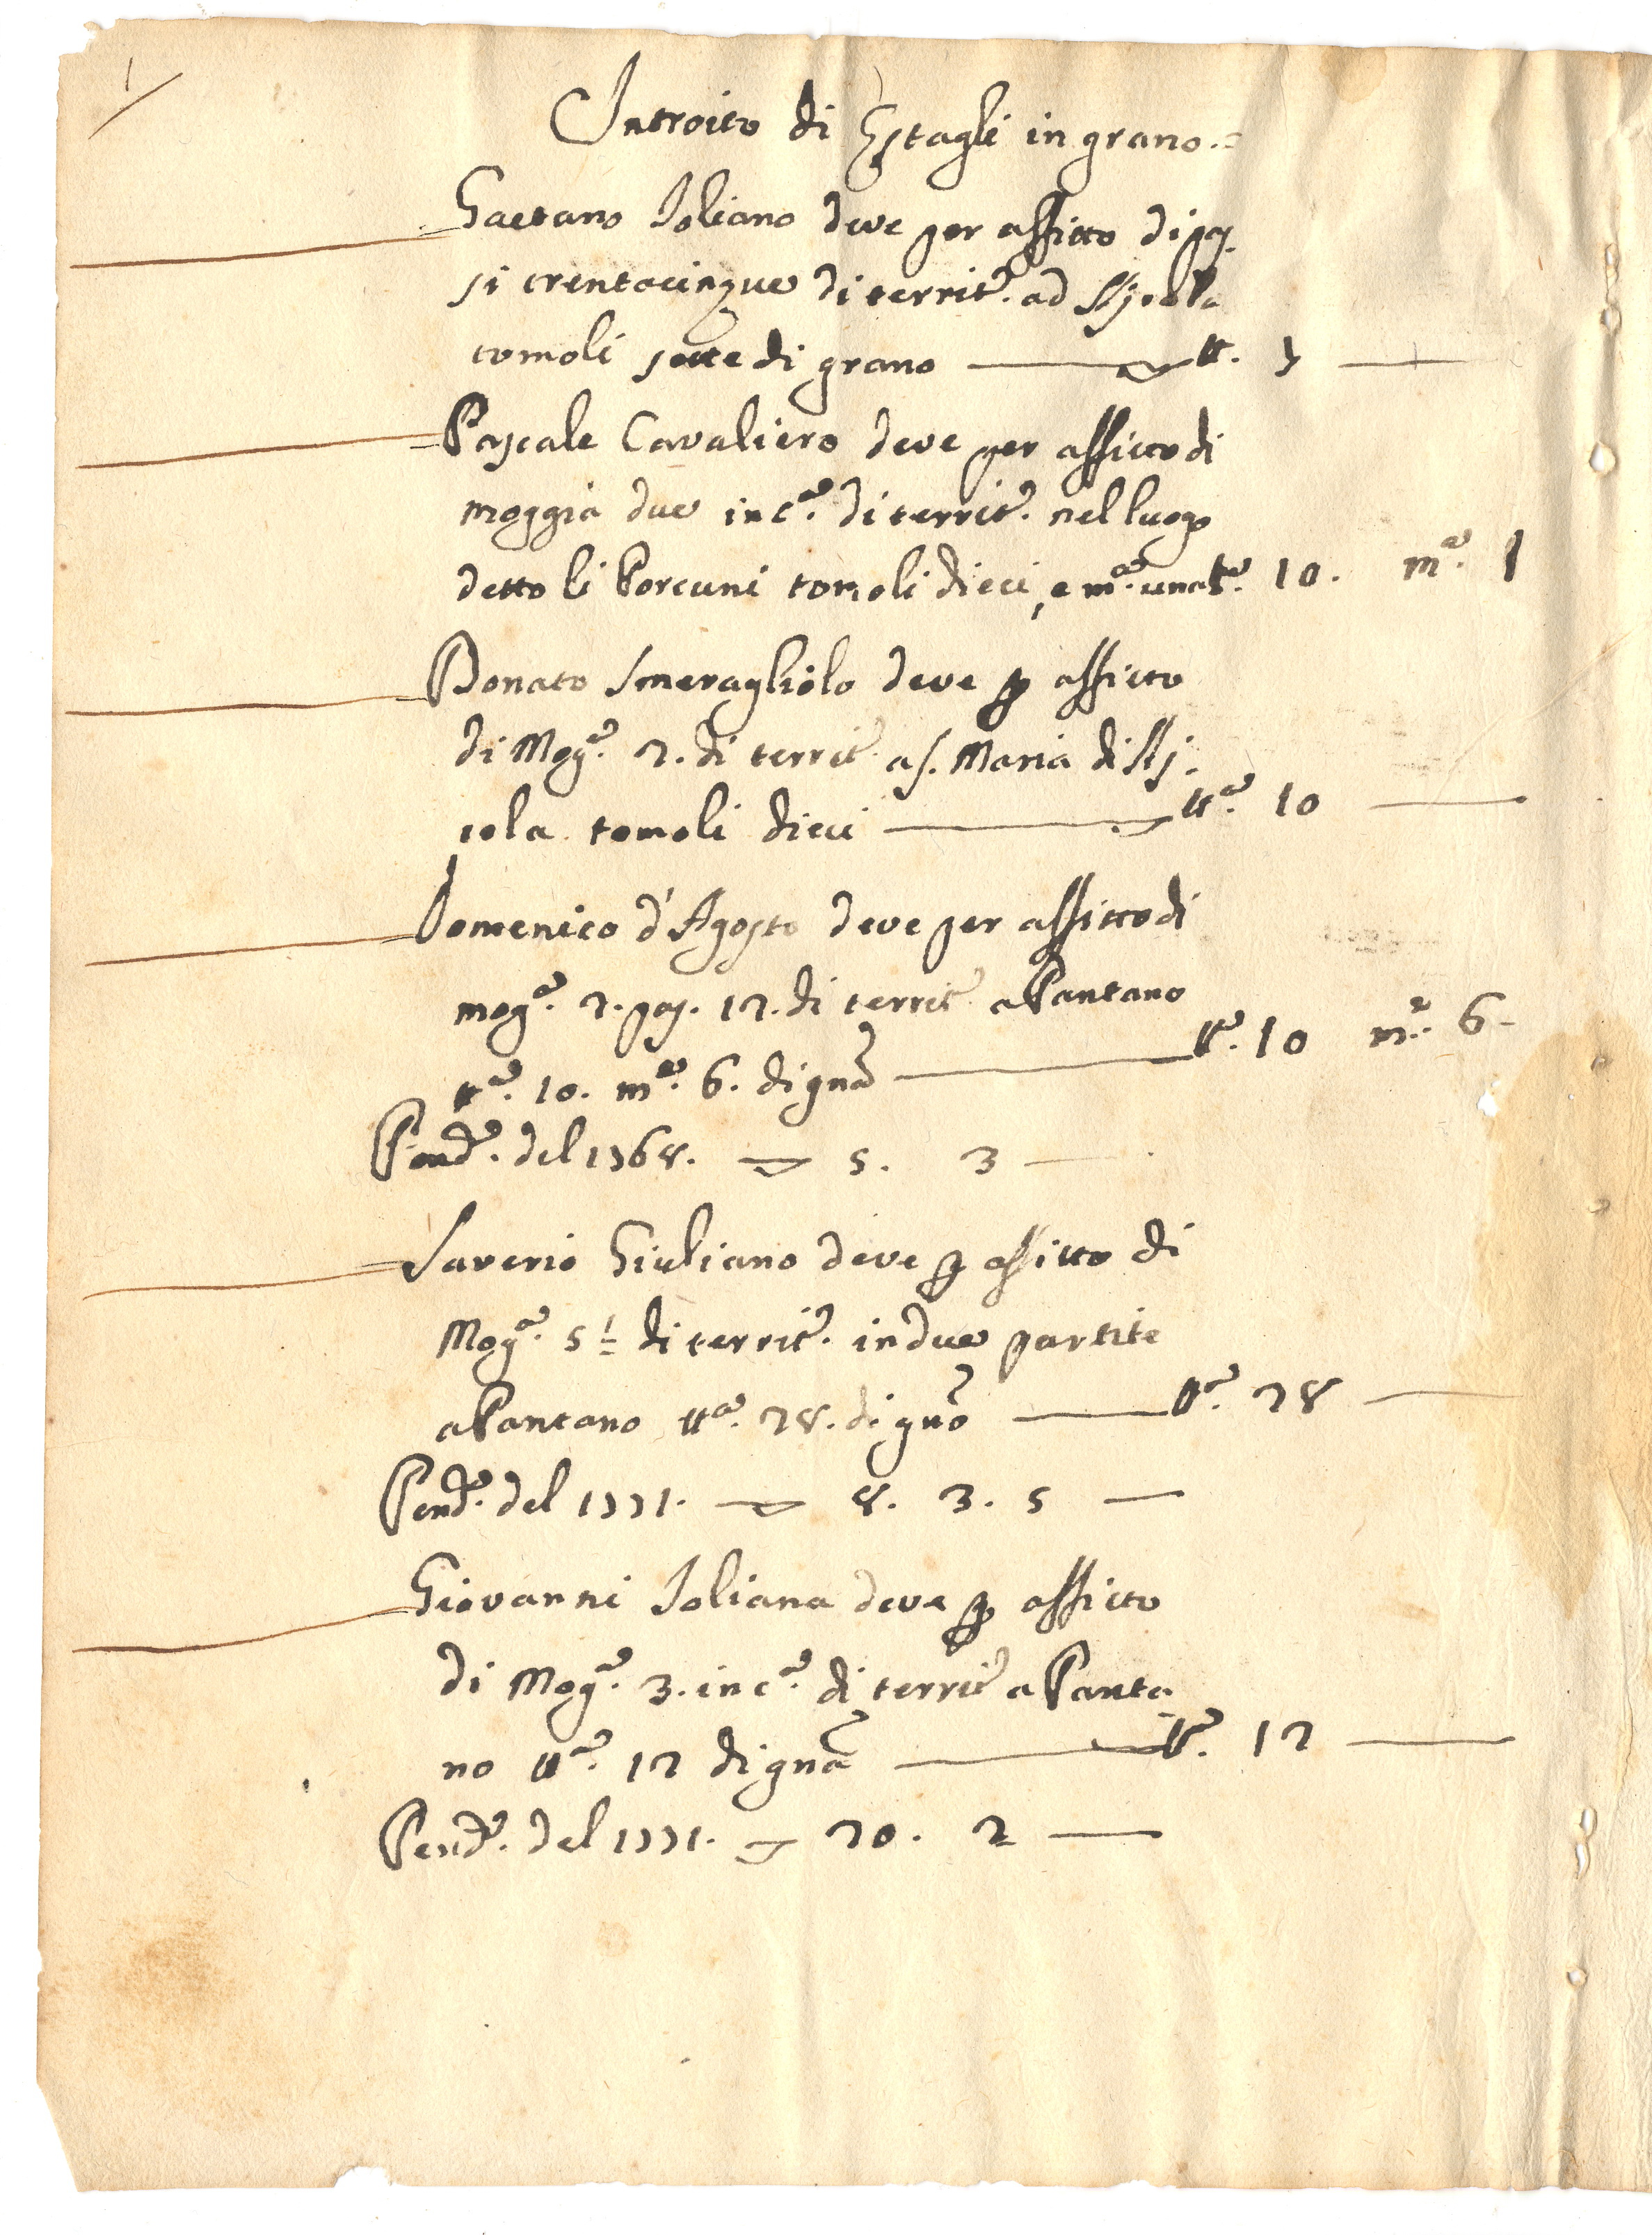 1
Introito di Estagli in grano.
Gaetano Ioliano deve per affitto di pas-
si trentacinque di territ.º ad
tomoli sette di grano — tt. 7 —
Pascale Cavaliero deve per affitto di
moggia due in c.ª di territ.º nel luogo
detto li Porcuni tomoli dieci, e m.ª una tt.ª 10. m.ª 1
Donato Smeragliolo deve p affitto
di Mog.ª 2. di territ.º a S. Maria di
cola tomoli dieci — tt.ª 10 —
Domenico d'Agosto deve per affitto di
mog.ª 2. pas. 12. di territ.º a Pantano
tt.ª 10. m.ª 6. di gnõ — tt.ª 10 m.ª 6 -
Pend.ª del 1768. — 5. 3 —
Saverio Giuliano deve p affitto di
Mog.ª 5 ½ di territ.º in due partite
a Pantano tt.ª 28. di gnõ — tt.ª 28 —
Pend.ª del 1771. — 8. 3. 5 —
Giovanni Ioliano deve p affitto
di Mog.ª 3. in c.ª di territ.º a Panta
no tt.ª 12 di gnõ — tt.ª 12 —
Pend.ª del 1771. — 20. 2 —